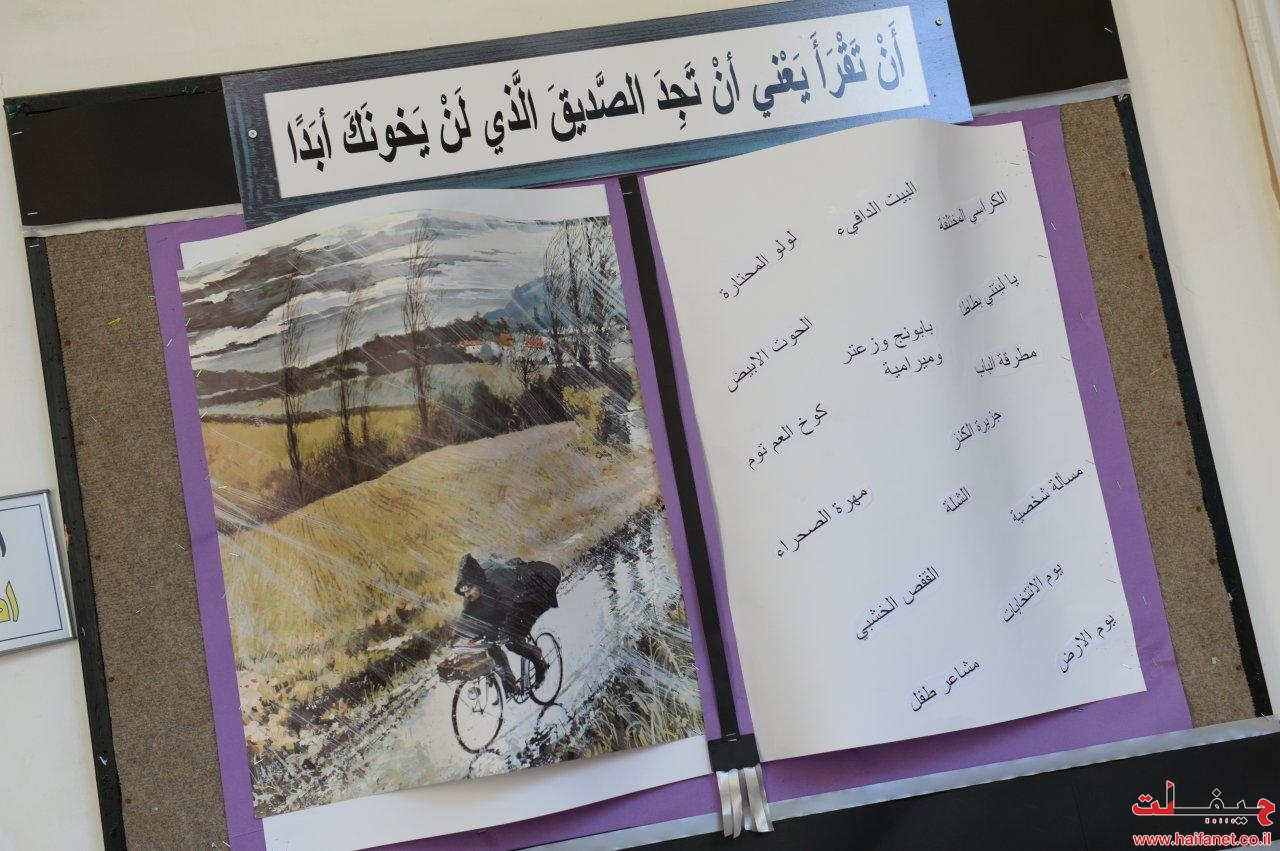 أَنْ تَقْرَأَ يَعْني أنْ تَجِدَ الصَّديقَ الَّذي لَنْ يَخونَكَ أبَدًا
الكراسي المختلفة
البيت الدافيء
لولو المحتارة
يا ليتني بطاطا
بابونج وزعتر
وميرامية
الحوت الابيض
مطرقة الباب
جزيرة الكنز
كوخ العم توم
مسألة شخصية
الشلة
مهرة الصحراء
يوم الانتخابات
القفص الخشبي
يوم الارض
مشاعر طفل
حيفا نت
www.haifanet.co.il